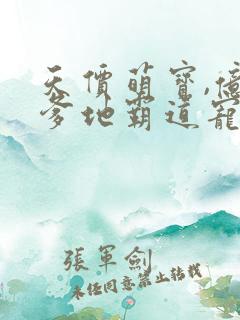 天價萌寶,億
爹地霸道寵
張軍劍
未任同意禁止轉載